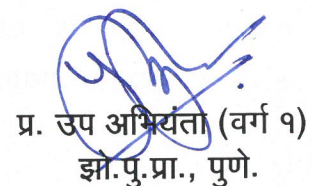 प्र. उप अभियंता (वर्ग १)
झो.पु.प्रा., पुणे.